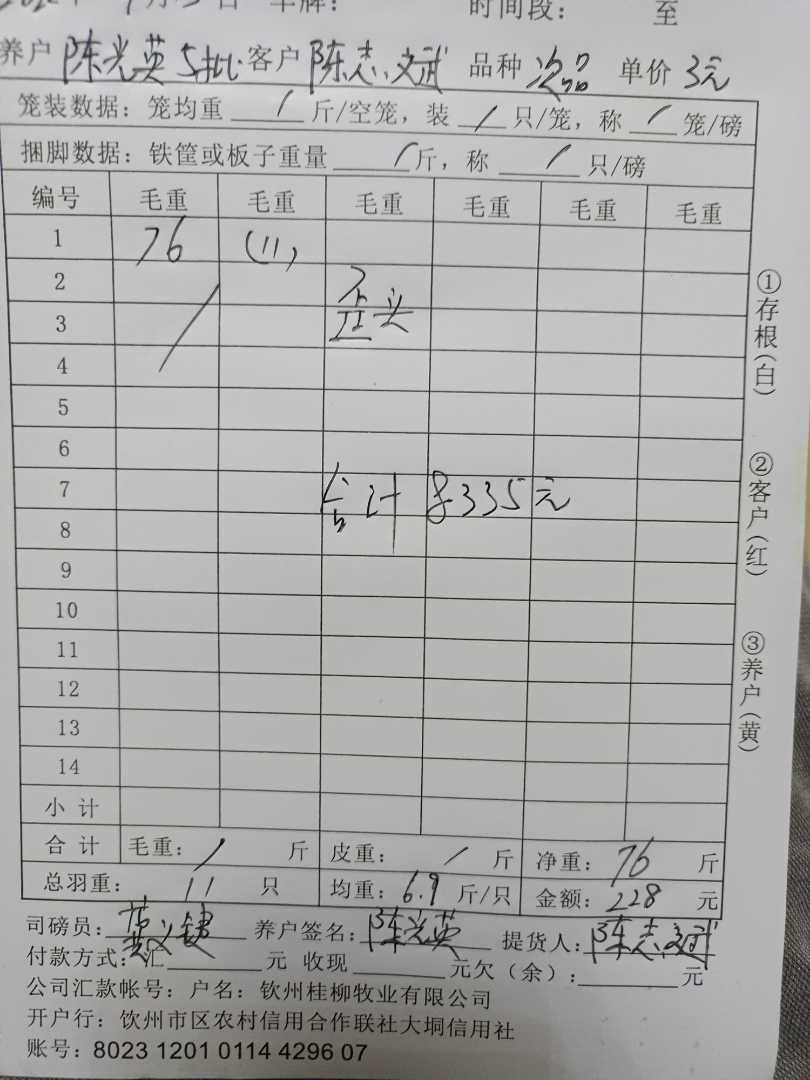 日 车牌： 时间段： 至
养户 陈光英5批 客户 陈志斌 品种 次品 单价 3元
笼装数据：笼均重 / 斤/空笼，装 / 只/笼，称 / 笼/磅
捆脚数据：铁筐或板子重量 / 斤，称 / 只/磅
编号 毛重 毛重 毛重 毛重 毛重 毛重
1 76 (11)
2
3 歪头
4
5
6
7 合计 ¥335元
8
9
10
11
12
13
14
小计
合计 毛重： / 斤 皮重： / 斤 净重：76 斤
总羽重： 11 只 均重：6.9 斤/只 金额：228 元
司磅员： 养户签名：陈光英 提货人：陈志斌
付款方式：汇 元 收现 元欠（余）： 元
公司汇款帐号：户名：钦州桂柳牧业有限公司
开户行：饮州市区农村信用合作联社大垌信用社
账号：8023 1201 0114 4296 07
①存根（白）
②客户（红）
③养户（黄）